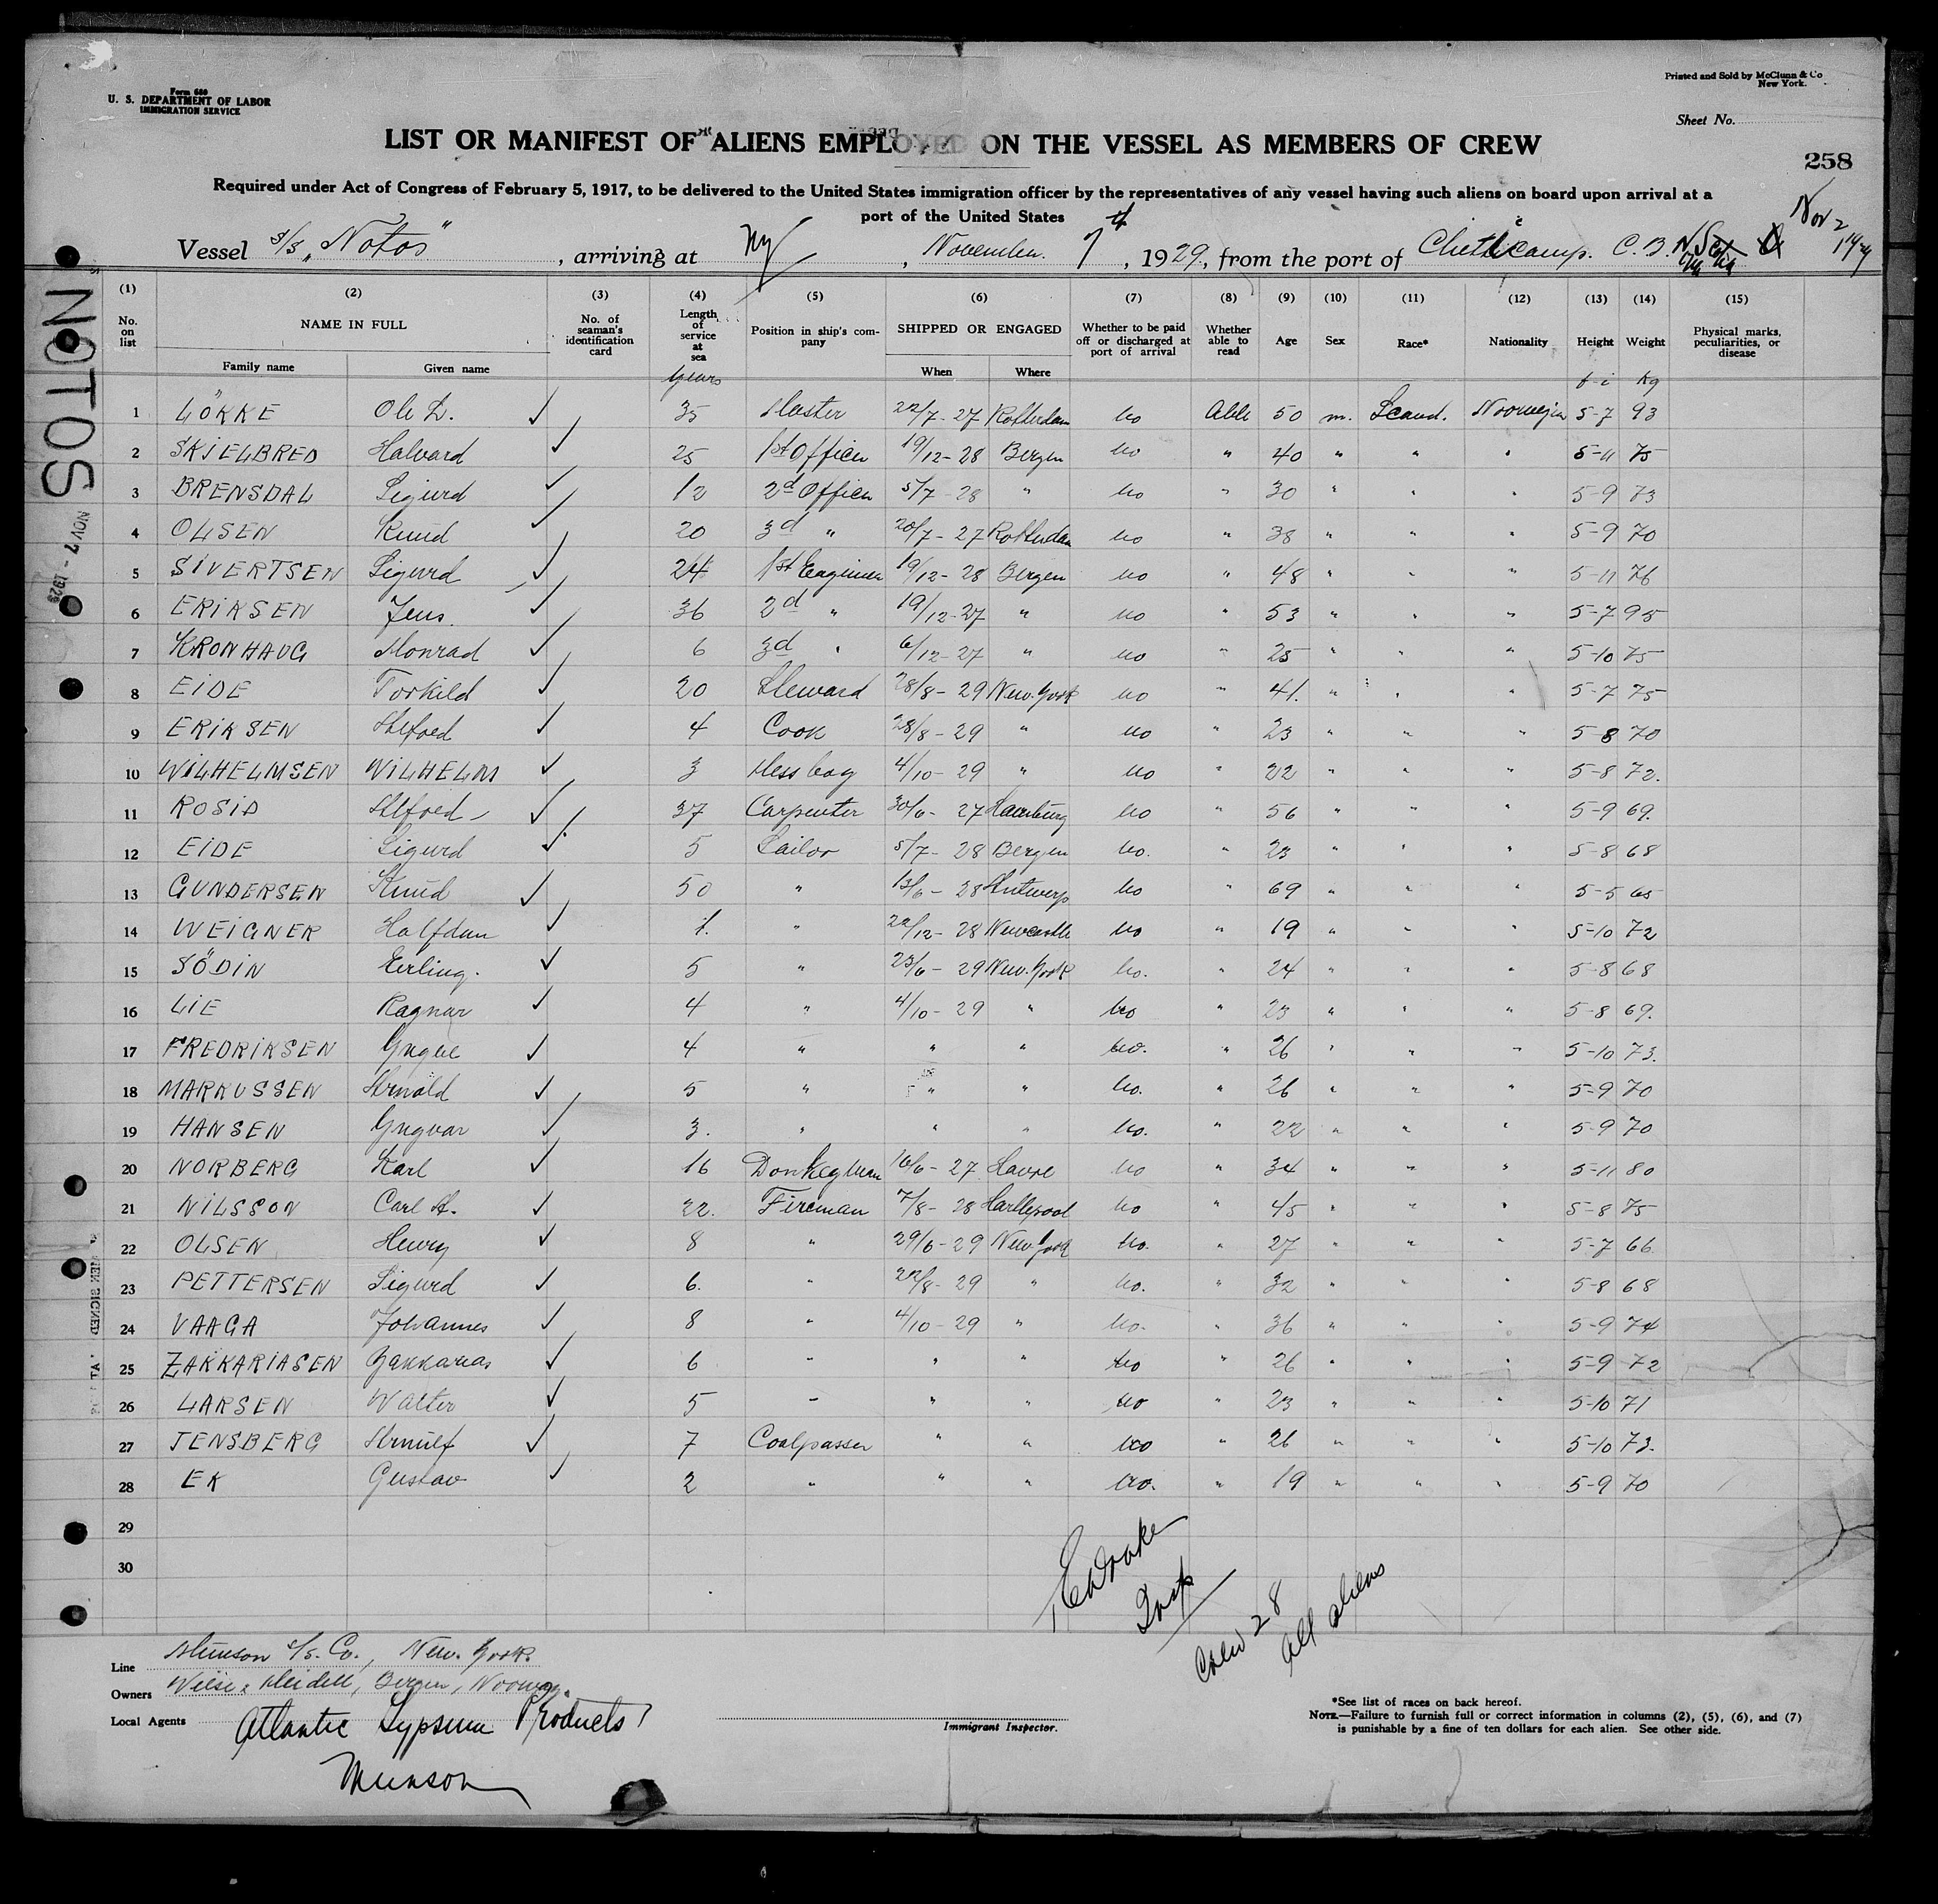 Form 680
U. S. DEPARTMENT OF LABOR
IMMIGRATION SERVICE
Printed and Sold by McClunn & Co
New York.
Sheet No.
LIST OR MANIFEST OF ALIENS EMPLOYED ON THE VESSEL AS MEMBERS OF CREW
258
Required under Act of Congress of February 5, 1917, to be delivered to the United States immigration officer by the representatives of any vessel having such aliens on board upon arrival at a
port of the United States
Vessel S/S "Notos", arriving at Ny, November 7th, 1929, from the port of Chetticamp. C. B. N. Scotia
Nov 2
NOTOS
NOV 7 - 1929
(1) (2) (3) (4) (5) (6) (7) (8) (9) (10) (11) (12) (13) (14) (15)
No. on list | NAME IN FULL | Family name | Given name | No. of seaman's identification card | Length of service at sea | Position in ship's company | SHIPPED OR ENGAGED | When | Where | Whether to be paid off or discharged at port of arrival | Whether able to read | Age | Sex | Race* | Nationality | Height | Weight | Physical marks, peculiarities, or disease
years f-i Kg
1 LÖKKE Ole L. 35 Master 22/7-27 Rotterdam No Able 50 m. Scand. Norwejian 5-7 93
2 SKJELBRED Halvard 25 1st Officer 19/12-28 Bergen No " 40 " " " 5-11 75
3 BRENSDAL Sigurd 12 2d Officer 5/7-28 " No " 30 " " " 5-9 73
4 OLSEN Knud 20 3d " 20/7-27 Rotterdam No " 38 " " " 5-9 70
5 SIVERTSEN Sigurd 24 1st Engineer 19/12-28 Bergen no " 48 " " " 5-11 76
6 ERIKSEN Jens. 36 2d " 19/12-27 " no " 53 " " " 5-7 95
7 KRONHAUG Monrad 6 3d " 6/12-27 " no " 25 " " " 5-10 75
8 EIDE Torkild 20 Steward 28/8-29 New.York no " 41. " " " 5-7 75
9 ERIKSEN Alfred 4 Cook 28/8-29 " no " 23 " " " 5-8 70
10 WILHELMSEN WILHELM 3 Messboy 4/10-29 " No " 22 " " " 5-8 72.
11 ROSID Alfred 37 Carpenter 30/6-27 Hamburg No " 56 " " " 5-9 69.
12 EIDE Sigurd 5 Sailor 5/7-28 Bergen No. " 23 " " " 5-8 68
13 GUNDERSEN Knud 50 " 13/6-28 Antwerp No " 69 " " " 5-5 65
14 WEIGNER Halfdan 1. " 22/12-28 Newcastle No " 19 " " " 5-10 72
15 SÖDIN Erling. 5 " 23/6-29 New.York No. " 24 " " " 5-8 68
16 LIE Ragnar 4 " 4/10-29 " No " 23 " " " 5-8 69.
17 FREDRIKSEN Yngve 4 " " " no. " 26 " " " 5-10 73.
18 MARKUSSEN Arnold 5 " " " No. " 26 " " " 5-9 70
19 HANSEN Yngvar 3. " " " No. " 22 " " " 5-9 70
20 NORBERG Karl 16 Donkeyman 16/6-27 Havre No " 34 " " " 5-11 80
21 NILSSON Carl A. 22. Fireman 7/8-28 Hartlepool No " 45 " " " 5-8 75
22 OLSEN Henry 8 " 29/6-29 New York No. " 27 " " " 5-7 66.
23 PETTERSEN Sigurd 6. " 22/8-29 " No. " 32 " " " 5-8 68
24 VAAGA Johannes 8 " 4/10-29 " No. " 36 " " " 5-9 74
25 ZAKKARIASEN Zakkarias 6 " " " No " 26 " " " 5-9 72
26 LARSEN Walter 5 " " " no " 23 " " " 5-10 71
27 JENSBERG Arnulf 7 Coalpasser " " no " 26 " " " 5-10 73.
28 EK Gustav 2 " " " no. " 19 " " " 5-9 70
29
30
Insp
Crew 28
all aliens
Line Munson S/S. Co., New. York.
Owners Bergen, Norway.
Local Agents Atlantic Gypsum Products
Munson
Immigrant Inspector.
*See list of races on back hereof.
NOTE.—Failure to furnish full or correct information in columns (2), (5), (6), and (7)
is punishable by a fine of ten dollars for each alien. See other side.